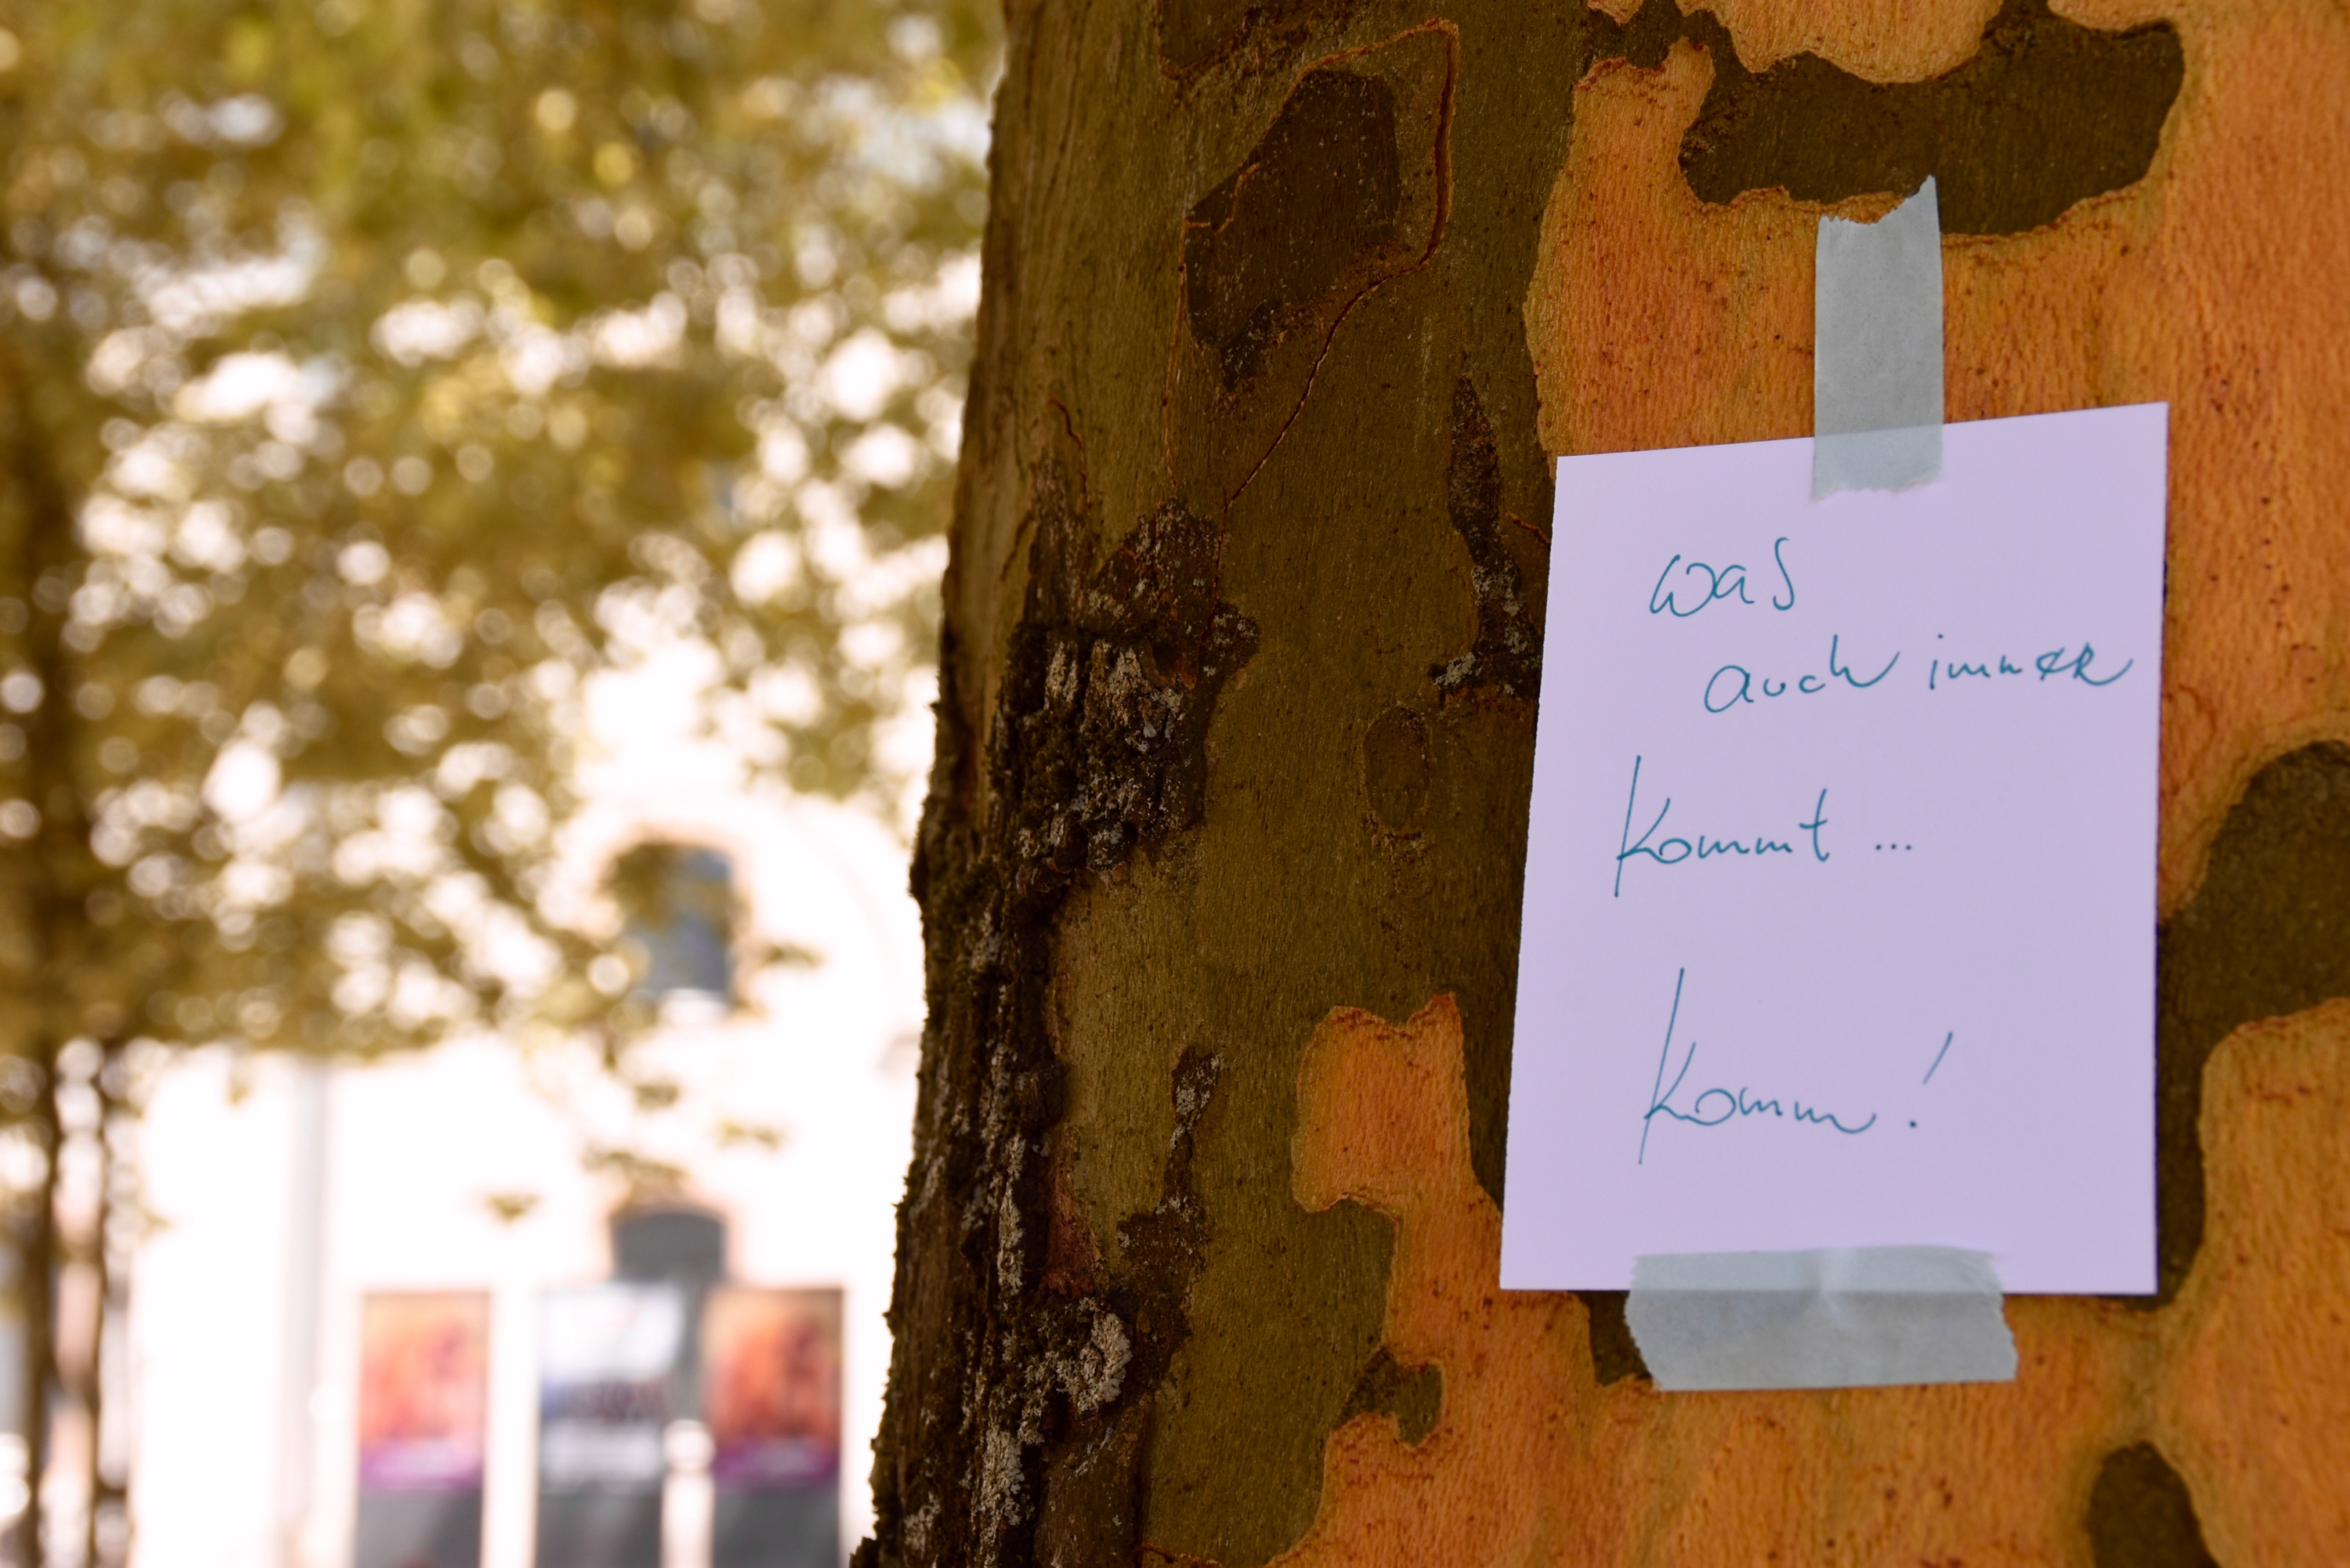 was
auch immer
kommt ...
komm!